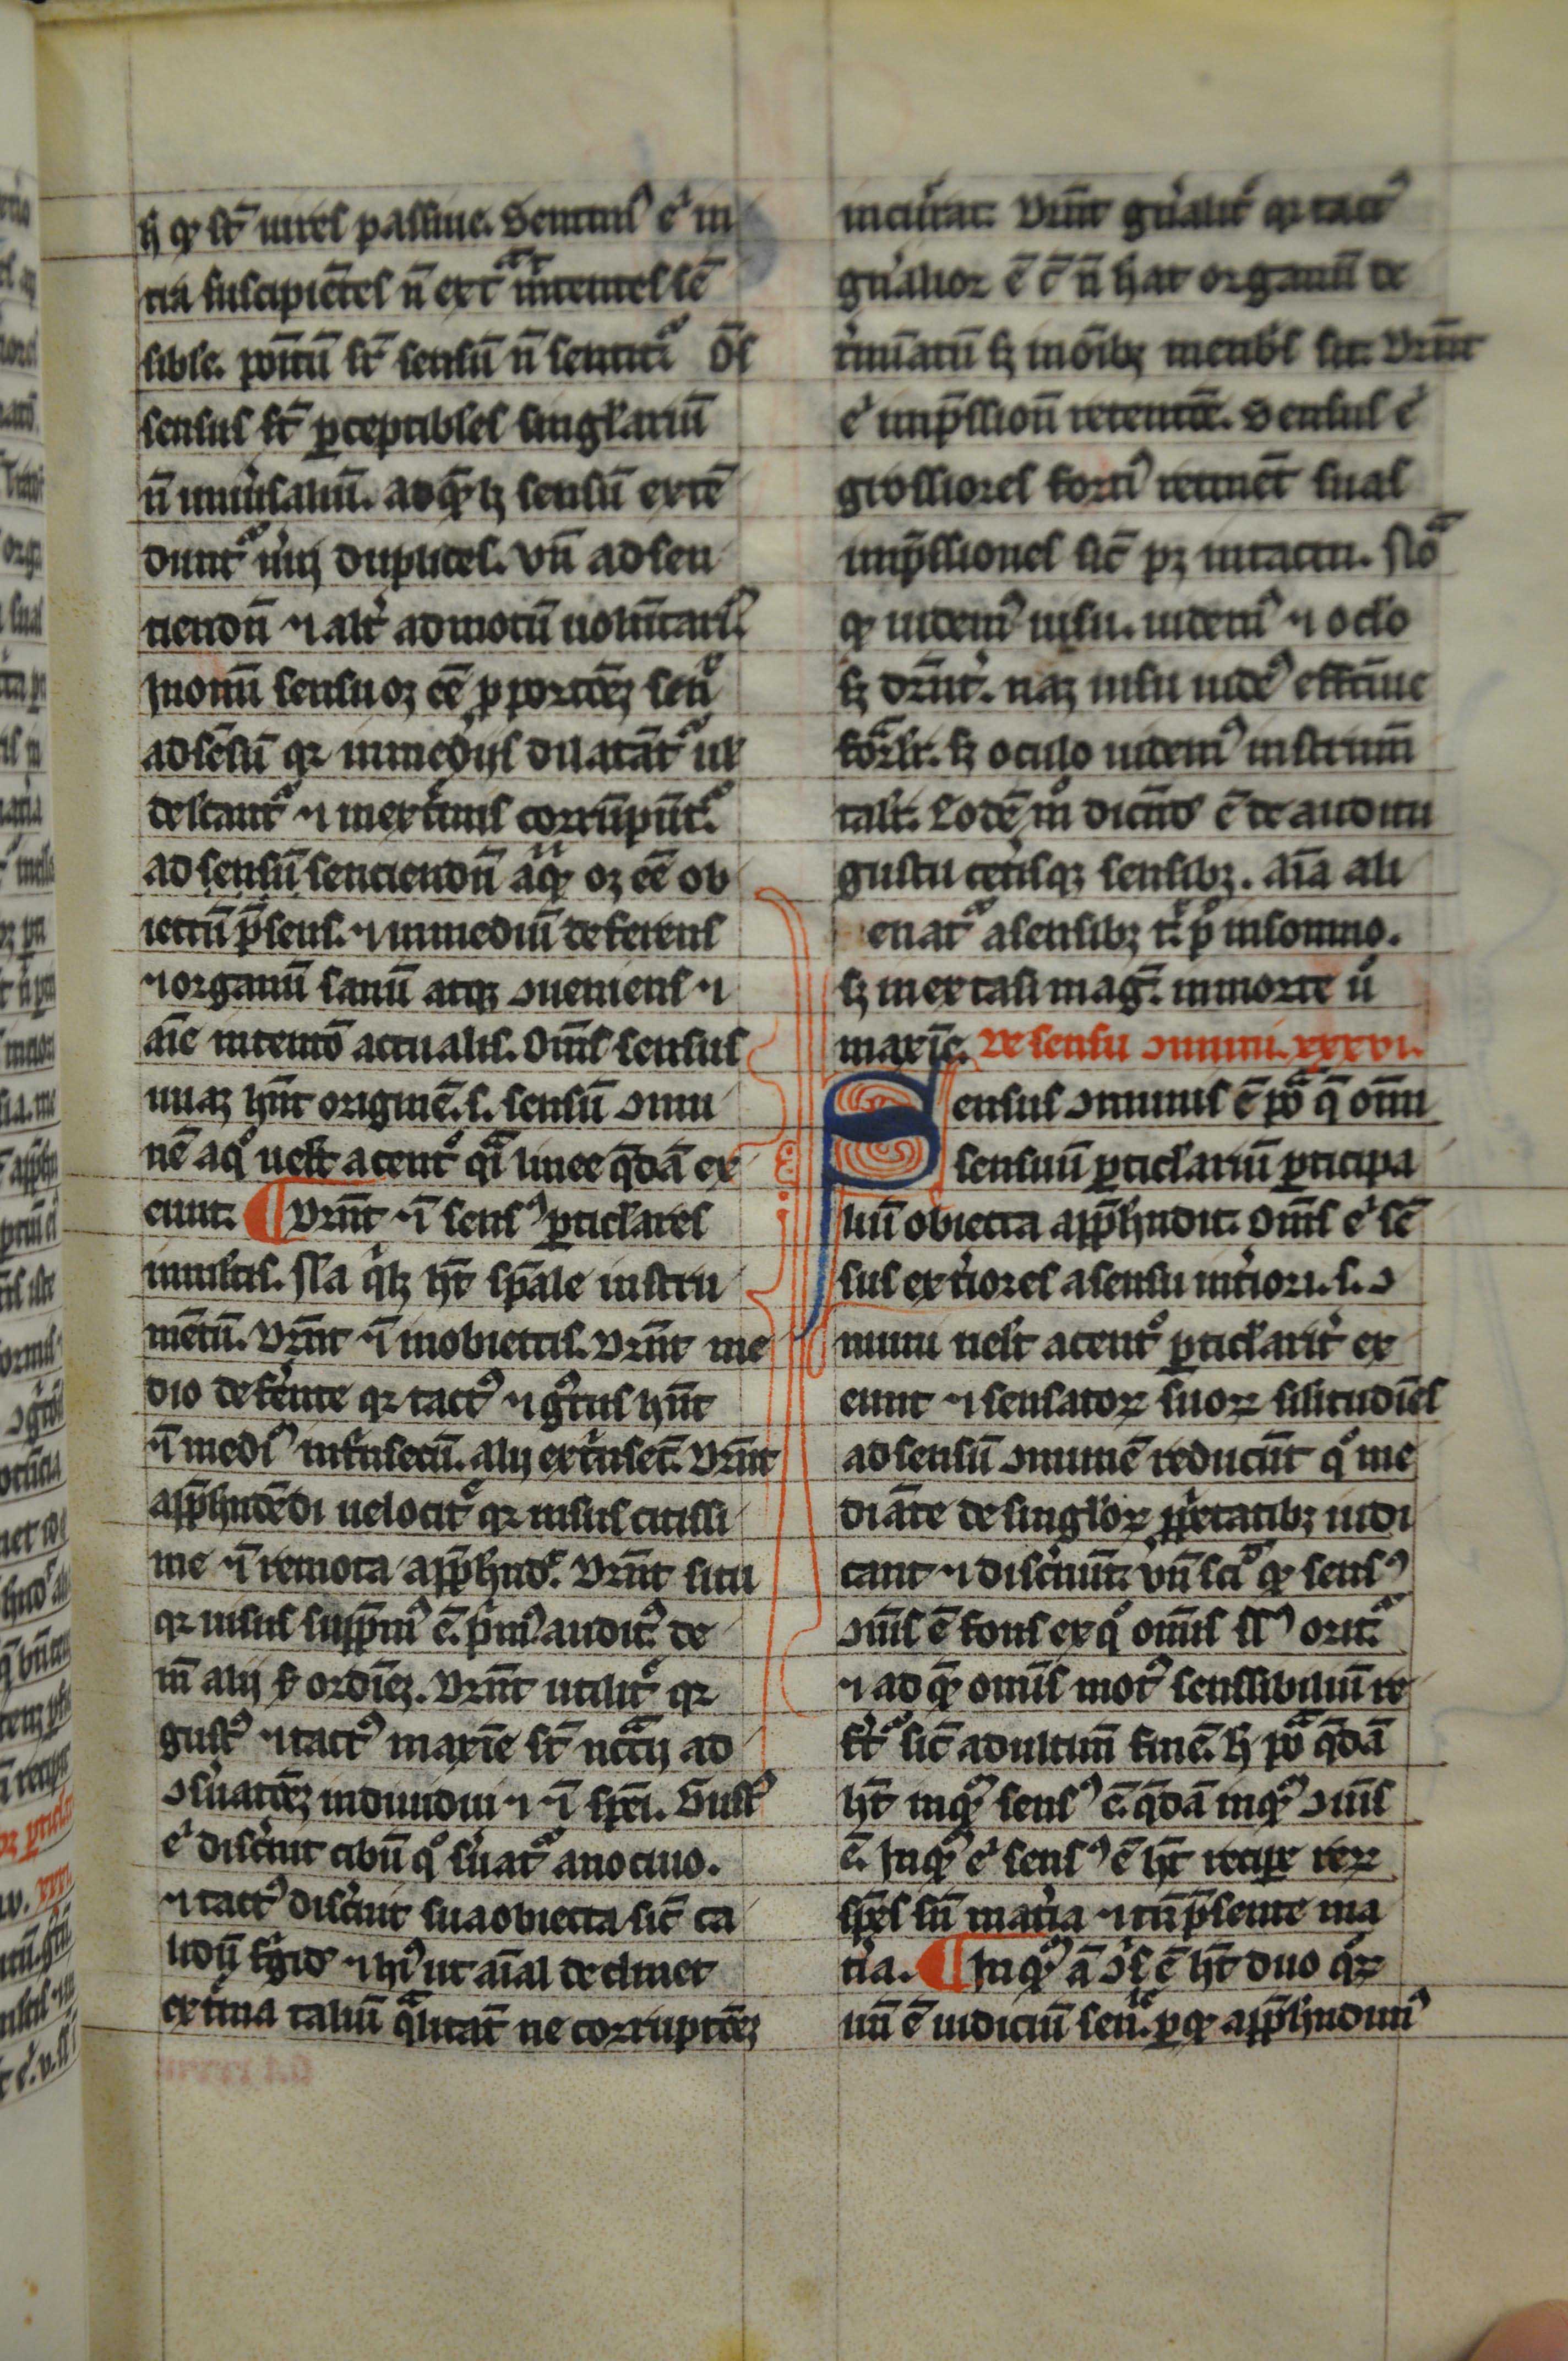 ħ q̄ st̄ uires passiue. Sentiunt e' in
tia suscipiētes n̄ ext̄ mittentes sē
sibłe. potētiā st̄ sensū n̄ sentit᷑ Oēs
sensus st̄ ꝑceptibłes singłariū
n̄ uniūsaliū. ad q̄lꝫ sensū extē
dunt᷑ nͥui duplices. vn̄ ad sen
tiendū ⁊ alt᷑ ad motū uolūtariꝰ.
Jnomī sensu oꝫ eē ꝓporcōeꝫ sen᷑
ad sēsū qꝛ in medijs dilatāt᷑ uł
delectant᷑ ⁊ in extͥmis corrūpūt᷑.
ad sensū senciendū aͣq̄ oꝫ eē ob
iectū p̄sens. ⁊ in mediū deferens
⁊ organū sanū atqꝫ ↄueniens ⁊
aīe intentō actualis. Om̄s sensus
unaꝫ hn̄t originē. s. sensū ↄmu
nē a qͦ uełt a cent᷑ qͣi linee q̄dā ex
eunt. ¶ Drn̄t ⁊ī sensꝰ ꝑticłares
in multis. Nā qͥlꝫ ht̄ sp̄ale instru
mētū. Drn̄t ⁊ī in obiectis. Drn̄t me
dio defͥente qꝛ tactꝰ ⁊ gͧstus hn̄t
⁊ī mediꝰ intͥnsecū. alij extͥnsec̄. Drn̄t
app̄hndēdi uelocit᷑ qꝛ uisus citissi
me ⁊ī remota app̄hnd᷑. Drn̄t situ
qꝛ uisus supp̄mꝰ ē. pͥmꝰ auditꝰ. de
in̄ alij s̄ ordīeꝫ. Drn̄t utilit᷑ qꝛ
gustꝰ ⁊ tactꝰ maxīe st̄ nccārij ad
ↄsͧuatōeꝫ indiuidui ⁊ ⁊ī sp̄ei. Gustꝰ
e' discͥnit cibū qͦ sͧuat᷑ a nociuo.
⁊ tactꝰ discͥnit sua obiecta sic̄ ca
lidū frͥgid᷑ ⁊ hiꝰ ut aīal declinet
extͥma taliū qͣlitat̄ ne corruptōeꝫ
incurrat. Drn̄t gn̄alit᷑ qꝛ tactꝰ
gn̄alior ē ⁊ī n̄ hat organū de
tͥmīatū sꝫ in oībꝫ membrͥs sit. Drn̄t
e' imp̄ssionū retentōe. Sensus e'
grossiores fortiꝰ retinēt suas
imp̄ssiones sic̄ pꝫ in tactu. Nō
q̄ uidemꝰ uisu. uidemꝰ ⁊ oclo
sꝫ drn̄t᷑. naꝫ uisu uideꝰ effctīue
formłr. sꝫ oculo uidemꝰ instrum̄
talr. Eodē mͦ dicend᷑ ē de auditu
gustu cetͥsqꝫ sensibꝫ. Aīa ali
enat᷑ a sensibꝫ t̄. ꝑ in somno.
sꝫ in extasi maḡ. in morte ū
maxīe. De sensu ↄmuni. xxxvi.
Sensus ↄmunis ē pōͣ q̄ omū
sensuū ꝑticłariū ꝑticipa
liū obiecta app̄hndit. Om̄s e' sē
sus extͥiores a sensu intͥiori. s. ↄ
muni uełt a cent᷑ ꝑticłarit᷑ ex
eunt ⁊ sensatoꝝ suoꝝ silitudīes
ad sensū ↄmunē reducūt qͦ me
diāte de singłoꝝ ꝓp̄etatibꝫ iudi
cant ⁊ discͥnūt. vn̄ scͣ q̄ sensꝰ
ↄīs ē fons ex qͦ omīs ssꝰ orit᷑.
⁊ ad q̄ omīs motꝰ senssibiliū re
fͥt᷑ sic̄ ad ultimū finē. ħ pōͣ q̄dā
ht̄ inqͣꝫ sensꝰ ē. q̄dā inqͣꝫ ↄīs
ē. Jnqͣꝫ e' sensꝰ ē ht̄ recipe reꝝ
sp̄es sn̄ matͥia ⁊ tn̄ p̄sente ma
tͥia. ¶ Jnqͣꝫ ā ↄīs ē ht̄ duo qͦꝝ
un̄ ē iudiciū sen̄. ꝑ q̄ app̄hndimꝰ